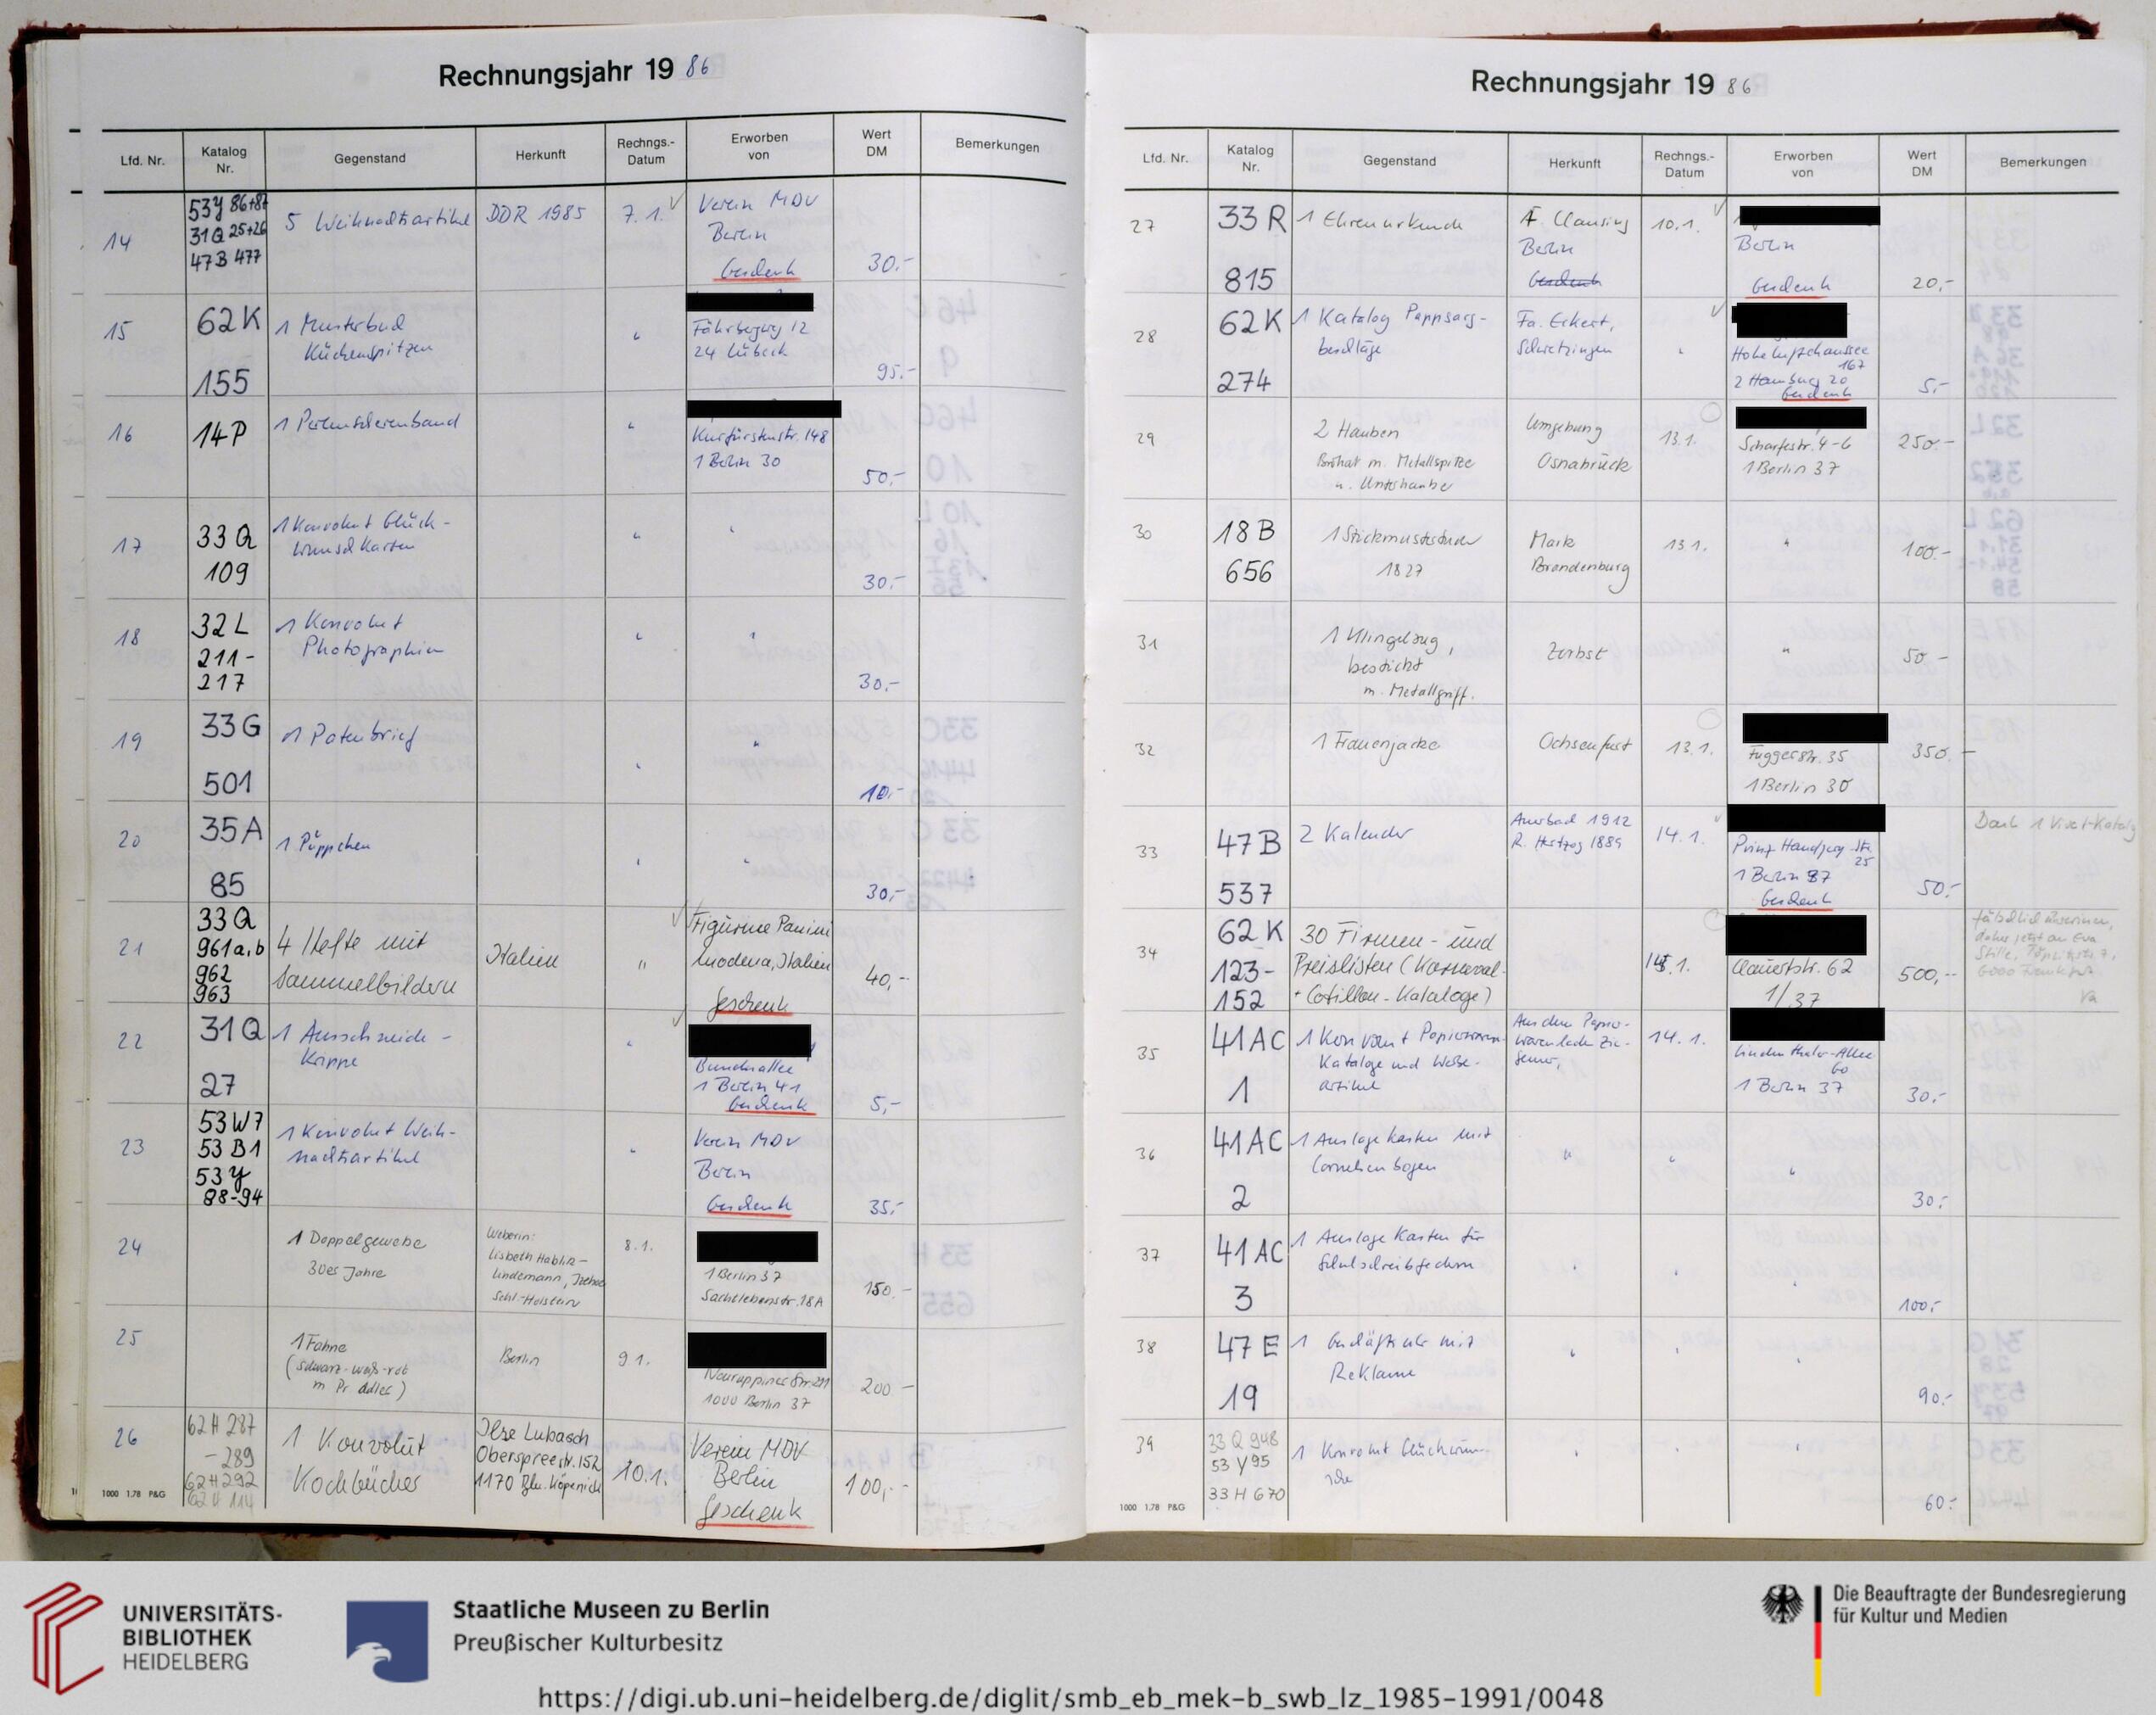 Rechnungsjahr 19 86
Lfd. Nr.
Katalog
Nr.
Gegenstand
Herkunft
Rechngs.-
Datum
Erworben
von
Wert
DM
Bemerkungen
14
53Y 86+87
31Q 25+26
47B 477
5 Weihnachtsartikel
DDR 1985
7.1.
Verein MDV
Berlin
Geschenk
30.-
15
62K
155
1 Musterbuch
Küchenspitzen
"
24 Lübeck
95.-
16
14P
"
Kurfürstenstr. 148
1 Berlin 30
50.-
17
33Q
109
1 Konvolut Glück-
wunschkarten
"
"
30.-
18
32L
211-
217
1 Konvolut
Photographien
"
"
30.-
19
33G
501
1 Patenbrief
"
"
10.-
20
35A
85
1 Püppchen
"
"
30.-
21
33Q
961a,b
962
963
4 Hefte mit
Sammelbildern
Italien
"
Figurine Panini
Modena, Italien
Geschenk
40,-
22
31Q
27
1 Ausschneide-
Krippe
"
Bundesallee
1 Berlin 41
Geschenk
5,-
23
53W7
53B1
53Y
88-94
1 Konvolut Weih-
nachtsartikel
"
Verein MDV
Berlin
Geschenk
35.-
24
1 Doppelgewebe
30er Jahre
Weberin:
Lisbeth Hablik-
Lindemann, Itzehoe
Schl-Holstein
8.1.
1 Berlin 37
Sachtlebenstr. 18A
150.-
25
1 Fahne
(schwarz-weiß-rot
m Pr. Adler)
Berlin
9 1.
1000 Berlin 37
200 -
26
62H 287
-289
62H 292
62H 114
1 Konvolut
Kochbücher
Ilse Lubasch
Oberspreestr. 152
1170 Bln. Köpenick
10.1.
Verein MDV
Berlin
Geschenk
100,-
1000 1.78 P&G
Rechnungsjahr 19 86
Lfd. Nr.
Katalog
Nr.
Gegenstand
Herkunft
Rechngs.-
Datum
Erworben
von
Wert
DM
Bemerkungen
27
33R
815
1 Ehrenurkunde
F. Clausing
Berlin
Geschenk
10.1.
Berlin
Geschenk
20,-
28
62K
274
1 Katalog Pappsarg-
beschläge
Fa. Eckert,
Schwetzingen
"
Hoheluftchaussee
167
2 Hamburg 20
Geschenk
5,-
29
2 Hauben
Brokat m. Metallspitze
u. Unterhaube
Umgebung
Osnabrück
13.1.
Scharfestr. 4-6
1 Berlin 37
250-
30
18B
656
1 Stickmustertuch
1827
Mark
Brandenburg
13 1.
"
100.-
31
1 Klingelzug,
bestickt
m. Metallgriff.
Zerbst
"
50 -
32
1 Frauenjacke
Ochsenfurt
13.1.
Fuggerstr. 35
1 Berlin 30
350.-
33
47B
537
2 Kalender
Auerbach 1912
R. Hertzog 1889
14.1.
25
1 Berlin 87
Geschenk
50.-
1 Vivat-Katalog
34
62K
123-
152
30 Firmen- und
Preislisten (Karneval-
+ Cotillon-Kataloge)
14.1.
Clauertstr. 62
1/37
500,-
daher jetzt an Eva
Stille,
6000 Frankfurt
35
41AC
1
1 Konvolut Papierwaren-
Kataloge und Werbe-
artikel
Aus dem Papier-
warenladen
14.1.
Lindenthaler-Allee
60
1 Berlin 37
30.-
36
41AC
2
1 Auslagekasten mit
"
"
"
30.-
37
41AC
3
1 Auslage Kasten für
Schulschreibfedern
"
"
"
100,-
38
47E
19
1 Geschäftsuhr mit
Reklame
"
"
"
90.-
39
33Q 948
53Y95
33H 670
1 Konvolut Glückwün-
sche
"
"
"
60.-
1000 1.78 P&G
UNIVERSITÄTS-
BIBLIOTHEK
HEIDELBERG
Staatliche Museen zu Berlin
Preußischer Kulturbesitz
Die Beauftragte der Bundesregierung
für Kultur und Medien
https://digi.ub.uni-heidelberg.de/diglit/smb_eb_mek-b_swb_lz_1985-1991/0048